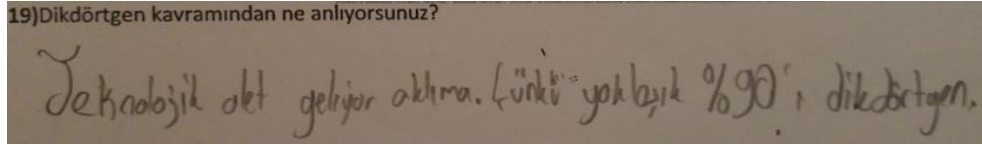 19)Dikdörtgen kavramından ne anlıyorsunuz?
Teknolojik alet geliyor aklıma. Çünkü yaklaşık %90'ı dikdörtgen.